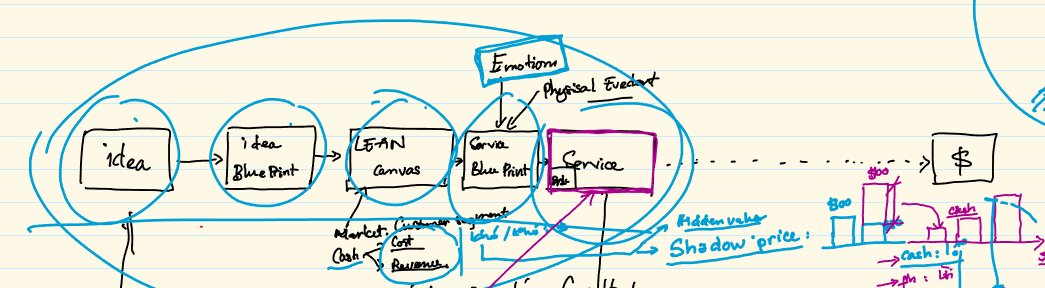 Emotion
Physical Evedent
idea
idea
Blue Print
LEAN
Canvas
Service
Blue Print
Service
$
Market
Customer segment
Cash
Cost
Revenue
Hidden value
Shadow price:
฿00
฿00
cash
cash: